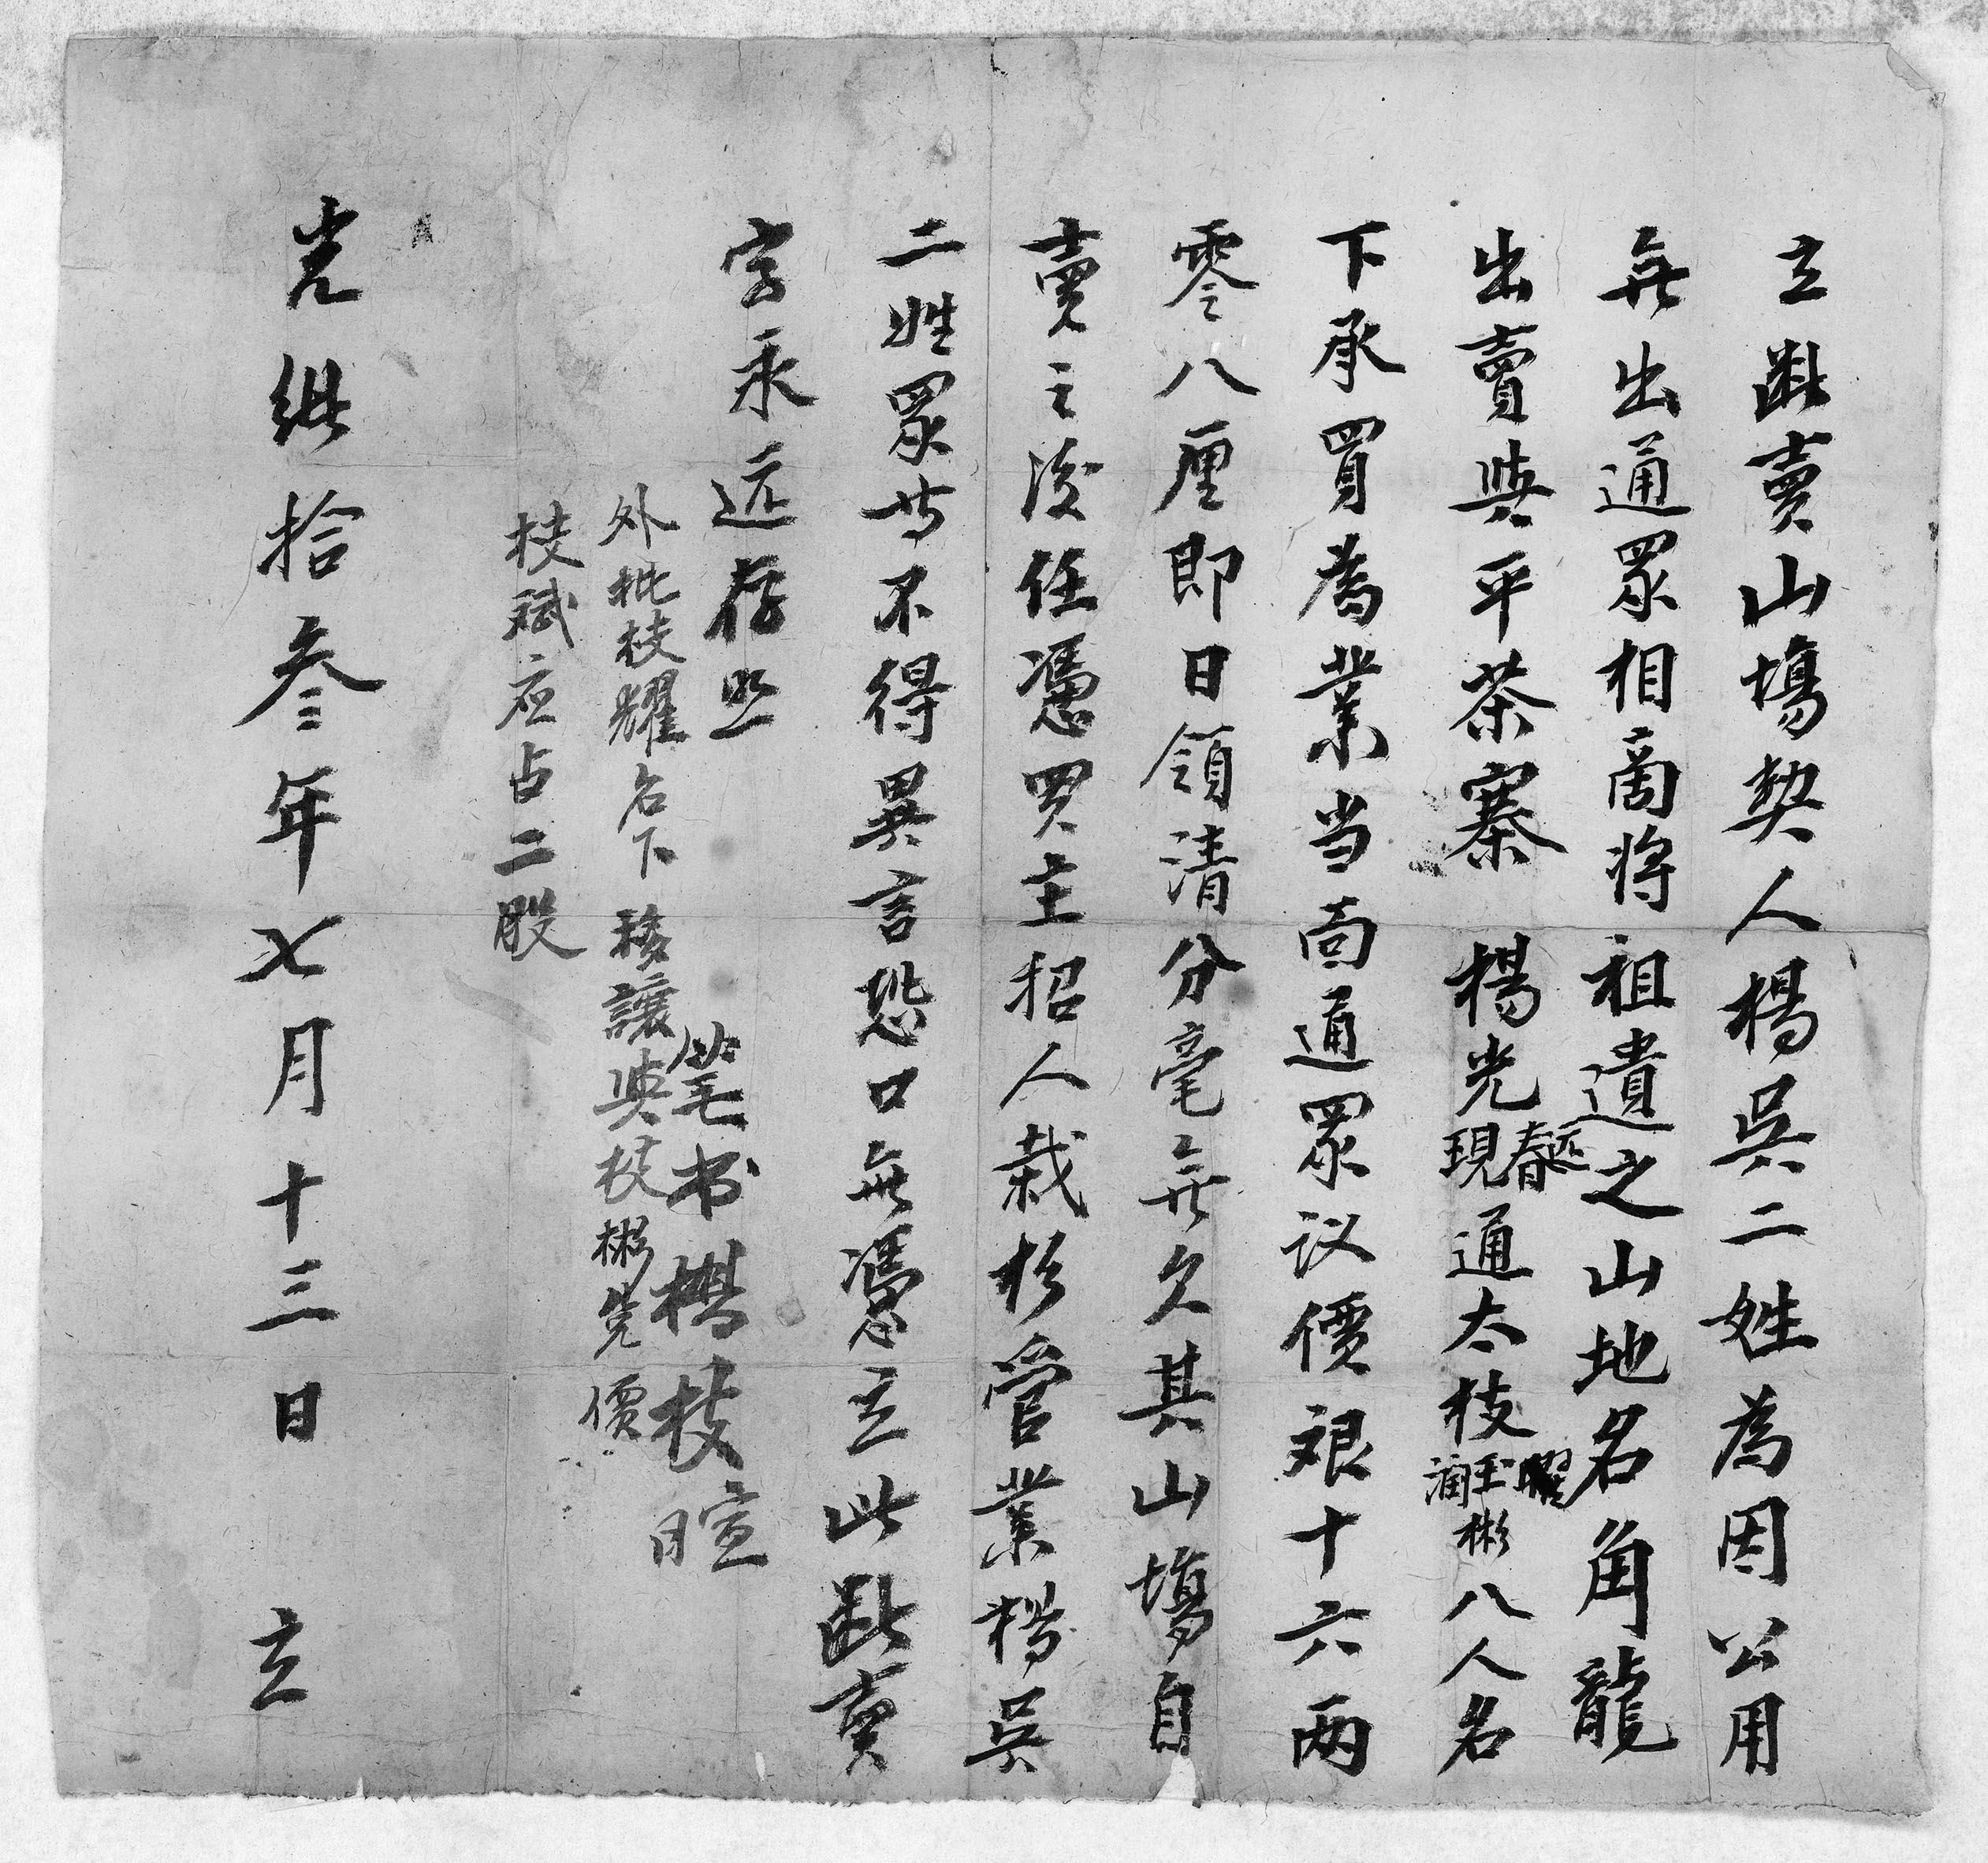 立斷賣山塲契人楊吳二姓為因公用
無出通眾相啇将祖遺之山地名角龍
出賣與平茶寨楊光現春廷通太枝潤玉耀彬八人名
下承買為業当面通眾议價艮十六两
零八厘即日領清分毫無欠其山塲自
賣之後任憑买主招人栽杉管業楊吳
二姓眾䓁不得異言恐口無憑立此斷賣
字永远存照
笔书楊枝暄
外批枝耀名下移讓與枝彬凭價
枝斌应占二股
光緒拾叁年七月十三日立